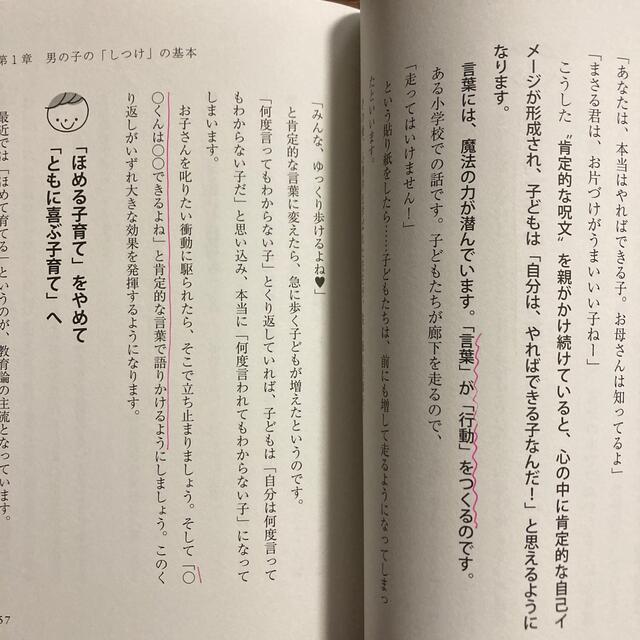 「あなたは、やればできる子。お母さんは知ってるよ」
「まさる君は、お片づけがうまいいい子ねー」
こうした〝肯定的な呪文〟を親がかけ続けていると、心の中に肯定的な自己イ
メージが形成され、子どもは「自分は、やればできる子なんだ！」と思えるように
なります。
言葉には、魔法の力が潜んでいます。「言葉」が「行動」をつくるのです。
ある小学校での話です。子どもたちが廊下を走るので、
「走ってはいけません！」
という貼り紙をしたら……子どもたちは、前にも増して走るようになってしまっ
たといいます。
第1章 男の子の「しつけ」の基本
「みんな、ゆっくり歩けるよね♥」
と肯定的な言葉に変えたら、急に歩く子どもが増えたというのです。
「何度言ってもわからない子」とくり返していれば、子どもは「自分は何度言って
もわからない子だ」と思い込み、本当に「何度言われてもわからない子」になって
しまいます。
お子さんを叱りたい衝動に駆られたら、そこで立ち止まりましょう。そして「〇
〇くんは〇〇できるよね」と肯定的な言葉で語りかけるようにしましょう。このく
り返しがいずれ大きな効果を発揮するようになります。
「ほめる子育て」をやめて
「ともに喜ぶ子育て」へ
最近では「ほめて育てる」というのが、教育論の主流となっています。
57